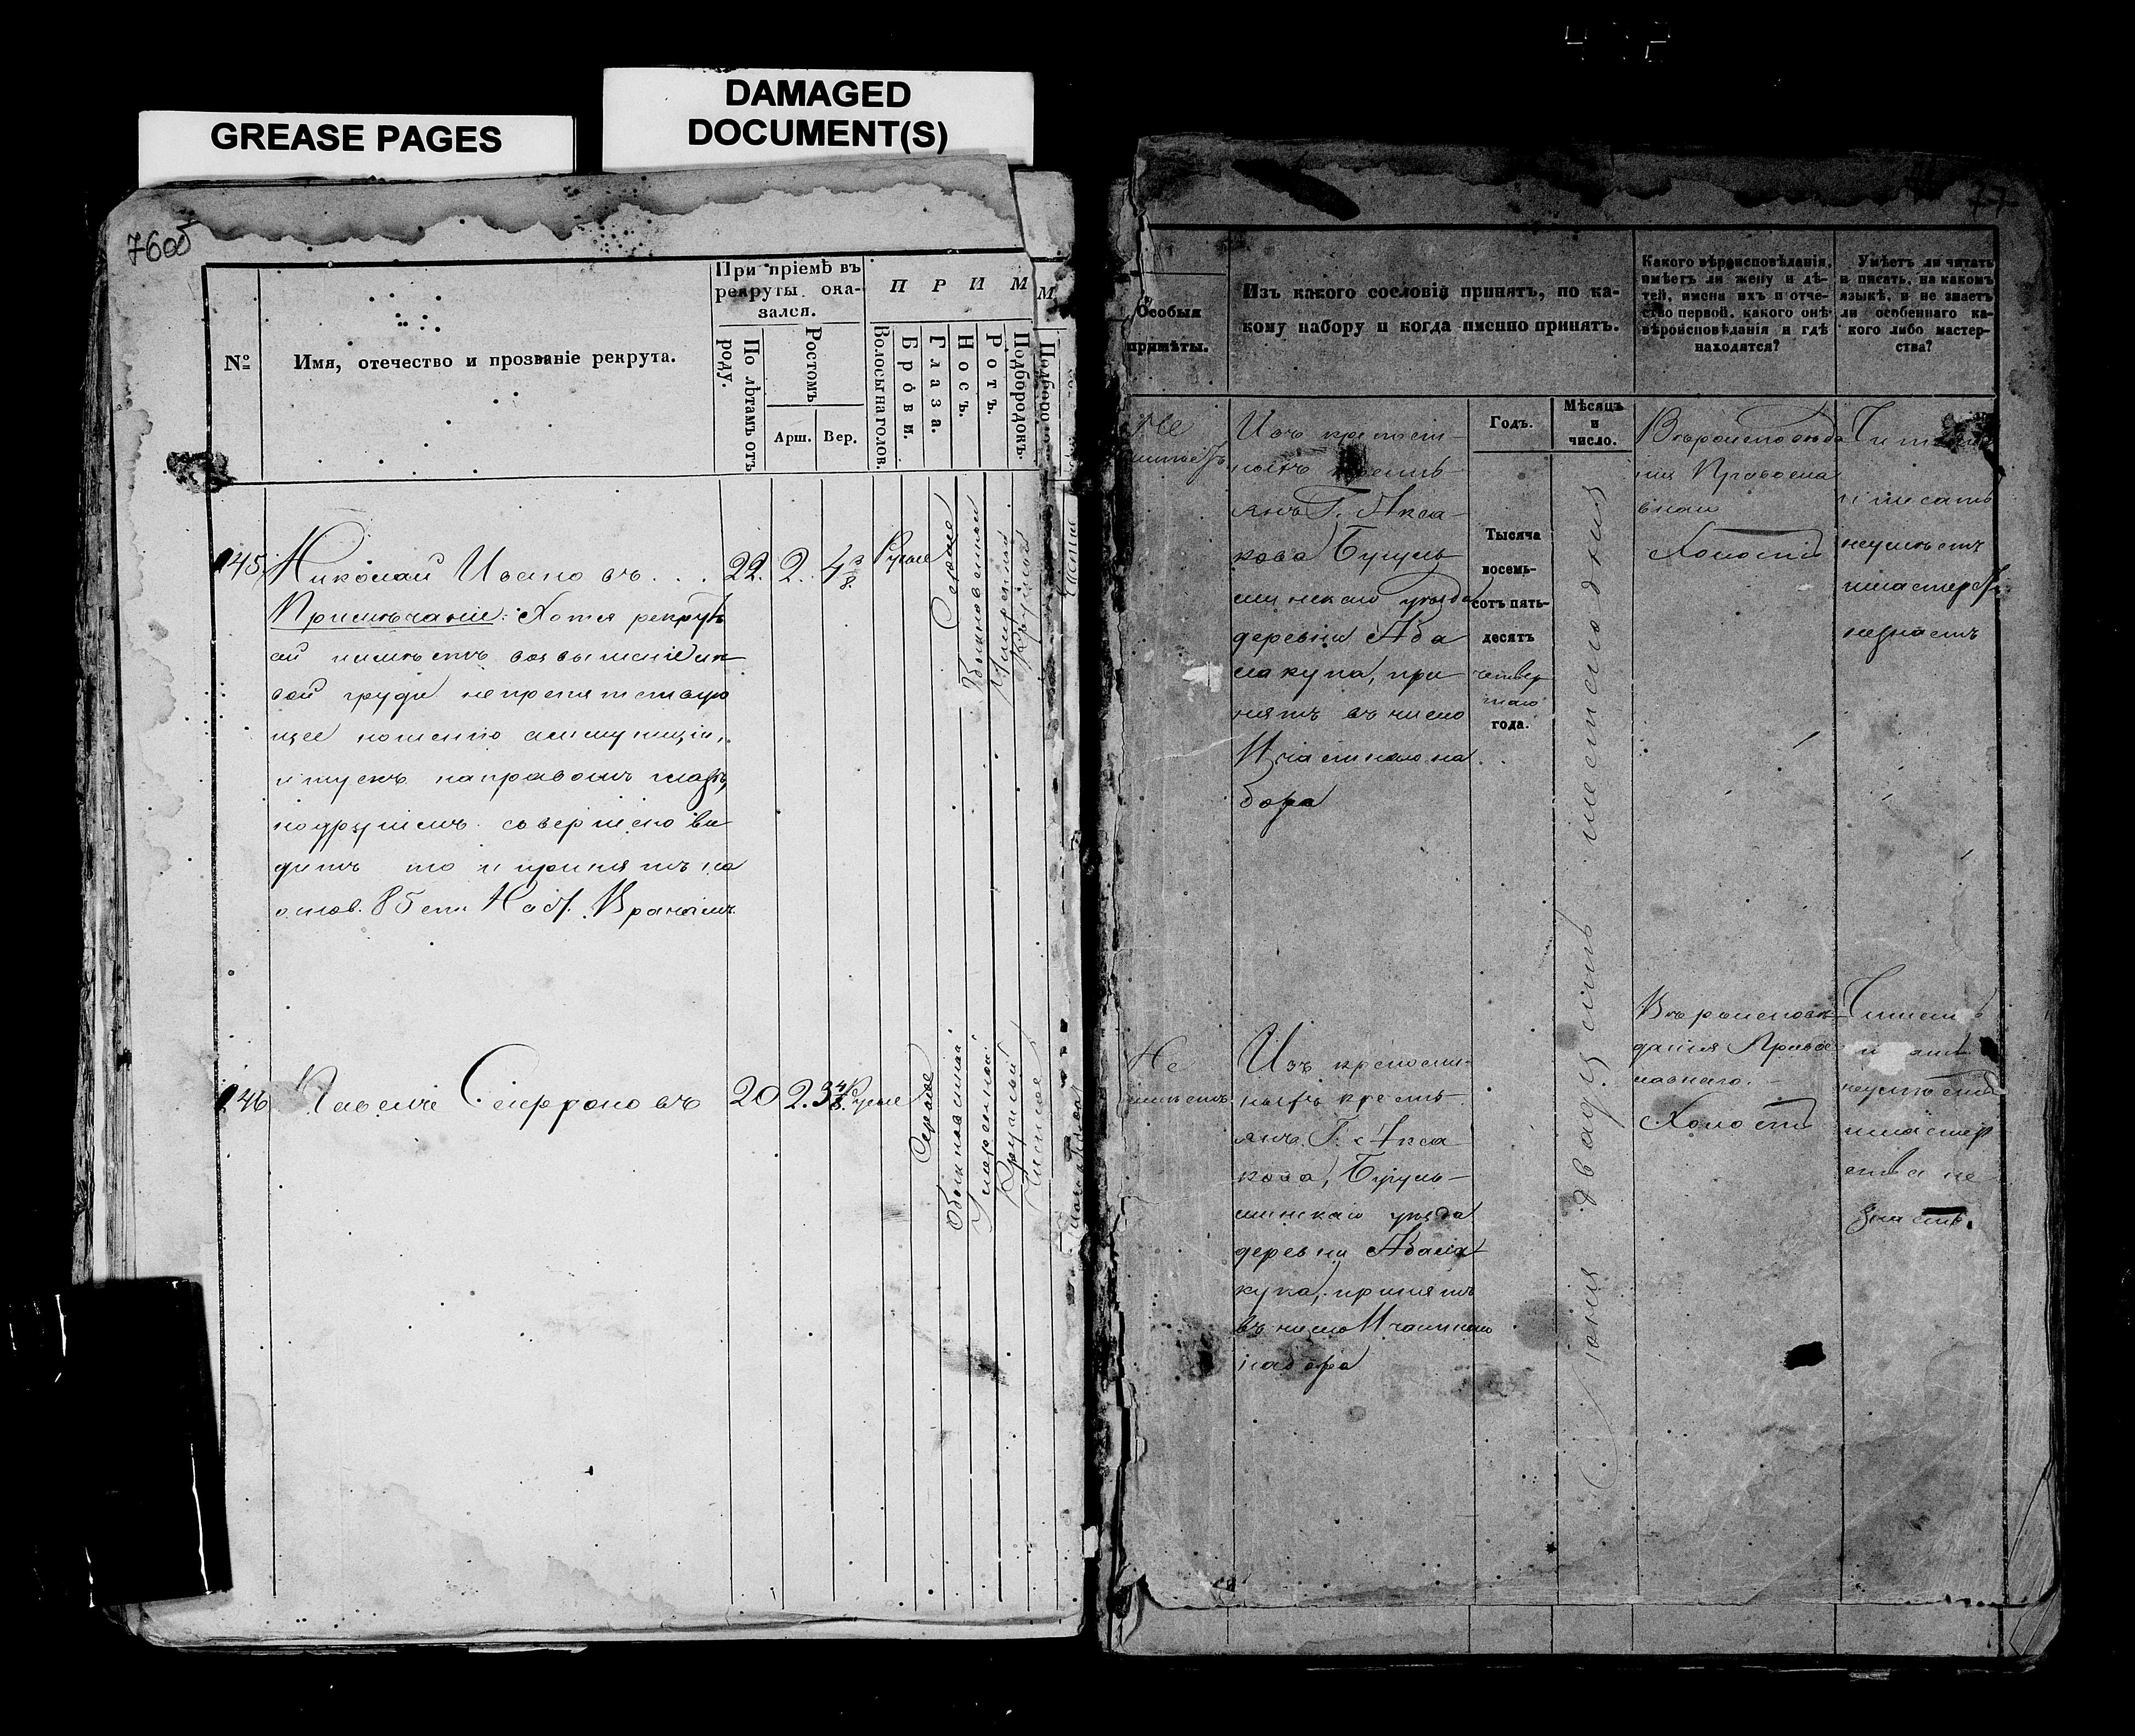 GREASE PAGES
DAMAGED
DOCUMENT(S)
76об
№
Имя, отечество и прозваніе рекрута.
При пріемѣ въ
рекруты ока-
зался.
По лѣтамъ отъ
роду.
Ростомъ
Арш. Вер.
П Р И М
Волосы на голов.
Брови.
Глаза.
Носъ.
Ротъ.
Подбородокъ.
145
Николай Ивановъ . . .
22. 2. 4 3/8.
Русые
Сѣрые
Обыкновенный
Умѣренный
Круглый
Примѣчаніе: Хотя рекрутъ
сей имѣетъ возвышеніе
вой груди непрепятствую
щее ношенію аммуниціи,
и тускъ на правомъ глазѣ,
но другимъ совершено ви
дитъ то и принятъ на
основ. 85 ст. Наст. Врачамъ.
146
Павелъ Сафроновъ
20 2. 3 4/8. Русые
Сѣрые
Обыкновенный
Умѣренный
Круглый
Чистое
77
Особыя
примѣты.
Изъ какого сословія принятъ, по ка-
кому набору и когда именно принятъ.
Какого вѣроисповѣданія,
имѣетъ ли жену и дѣ-
тей, имена ихъ и отче-
ство первой, какого онѣ
вѣроисповѣданія и гдѣ
находятся?
Умѣетъ ли читать
и писать, на какомъ
языкѣ, и не знаетъ
ли особеннаго ка-
кого либо мастер-
ства?
Годъ.
Мѣсяцъ
и
число.
Не
имѣетъ
Изъ крѣпост-
ныхъ кресть
янъ Г. Акса-
кова Бугуль
минскаго уѣзда
деревни Аба
лакупа, при
нятъ въ число
частнаго на
бора
Тысяча
восемь-
сотъ пять-
десятъ
четвер
таго
года.
Іюня двадцать шестаго дня
Вѣроисповѣда
нія Правосла
внаго
Холостъ
Читать
и писать
неумѣетъ
мастерств
незнаетъ
Не
имѣетъ
Изъ крѣпост-
ныхъ кресть
янъ Г. Акса
кова, Бугуль-
минскаго уѣзда
деревни Абала
купа, принятъ
въ число частнаго
набора
Вѣроисповѣ-
данія Право
славнаго.
Холостъ
Читать
неумѣетъ
мастер
ства не
знаетъ.